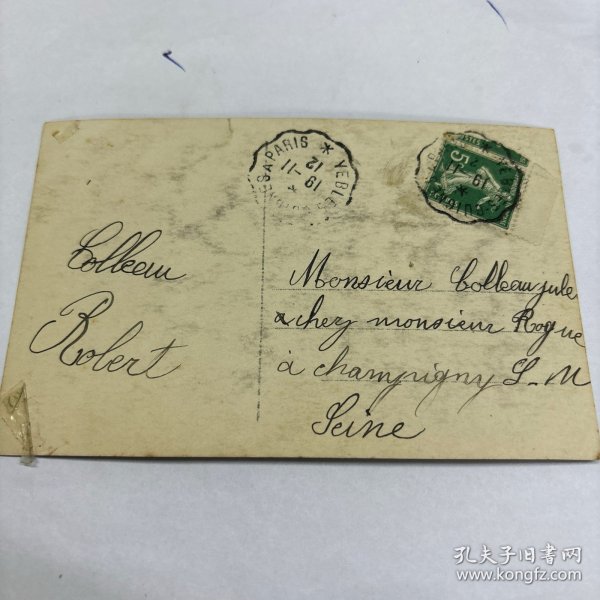 Colleau
Robert
Monsieur Colleau jule
chez monsieur Rogue
à champigny S-M
Seine
A PARIS * YEBLE
19-11
12
5
19-11
孔夫子旧书网
www.kongfz.com